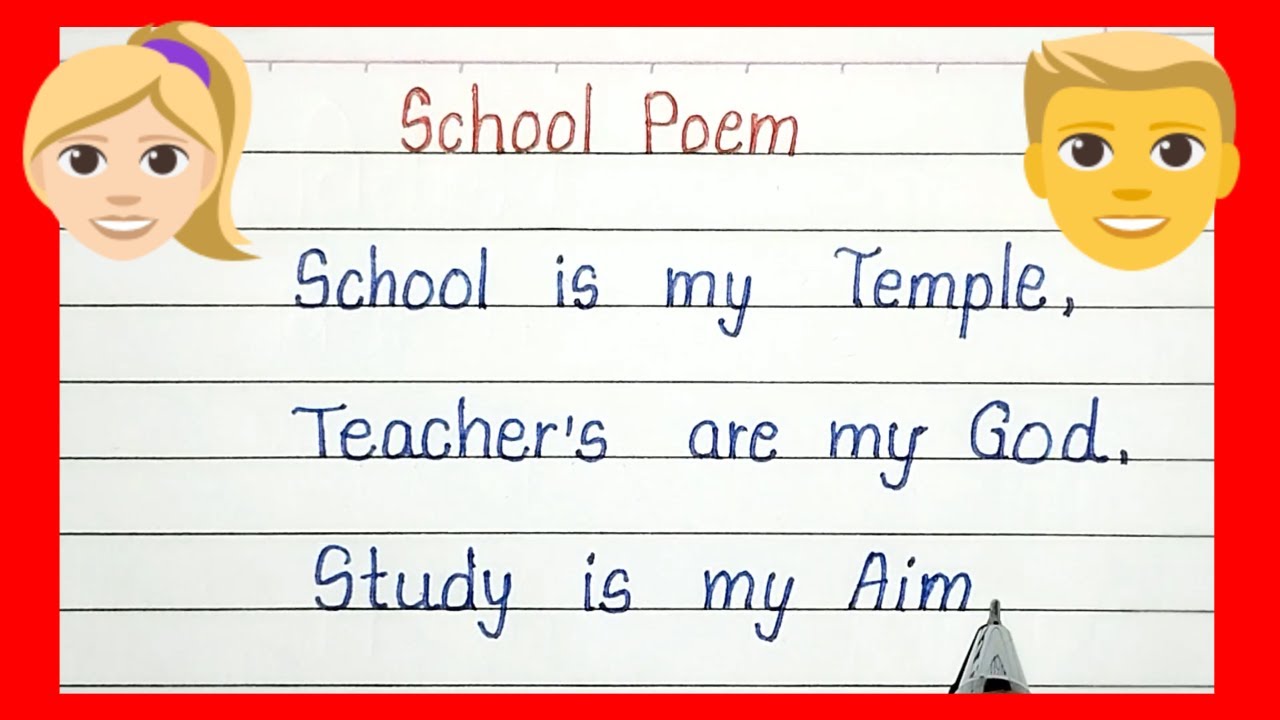 School Poem
School is my Temple,
Teacher's are my God.
Study is my Aim